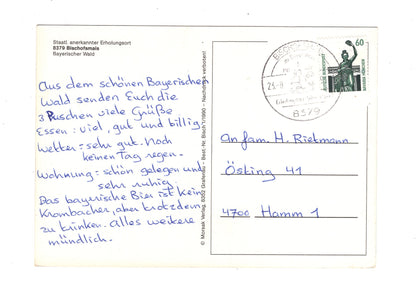 Staatl. anerkannter Erholungsort
8379 Bischofsmais
Bayerischer Wald
Aus dem schönen Bayerischen
Wald senden Euch die
3 Puschen viele Grüße
Essen: viel, gut und billig
Wetter: sehr gut. Noch
keinen Tag regen.
Wohnung: schön gelegen und
sehr ruhig
Das bayerische Bier ist kein
Krombacher, aber trotzdem
zu trinken. Alles weitere
mündlich.
© Morsak Verlag, 8352 Grafenau - Best.-Nr. Bisch 1/1990 - Nachdruck verboten!
60
8379
An Fam. H. Rietmann
Östing 41
4700 Hamm 1